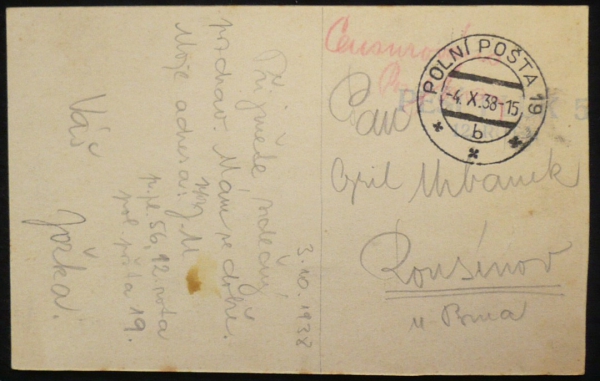 3.10.1938
Přijměte srdečný
pozdrav. Mám se dobře.
Moje adresa:
p.pl. 56, 12. rota
pol. pošta 19.
Váš
Jožka.
POLNÍ POŠTA 19
-4.X.38-15
b
Pan
Cyril Urbanek
Rousínov
u Brna